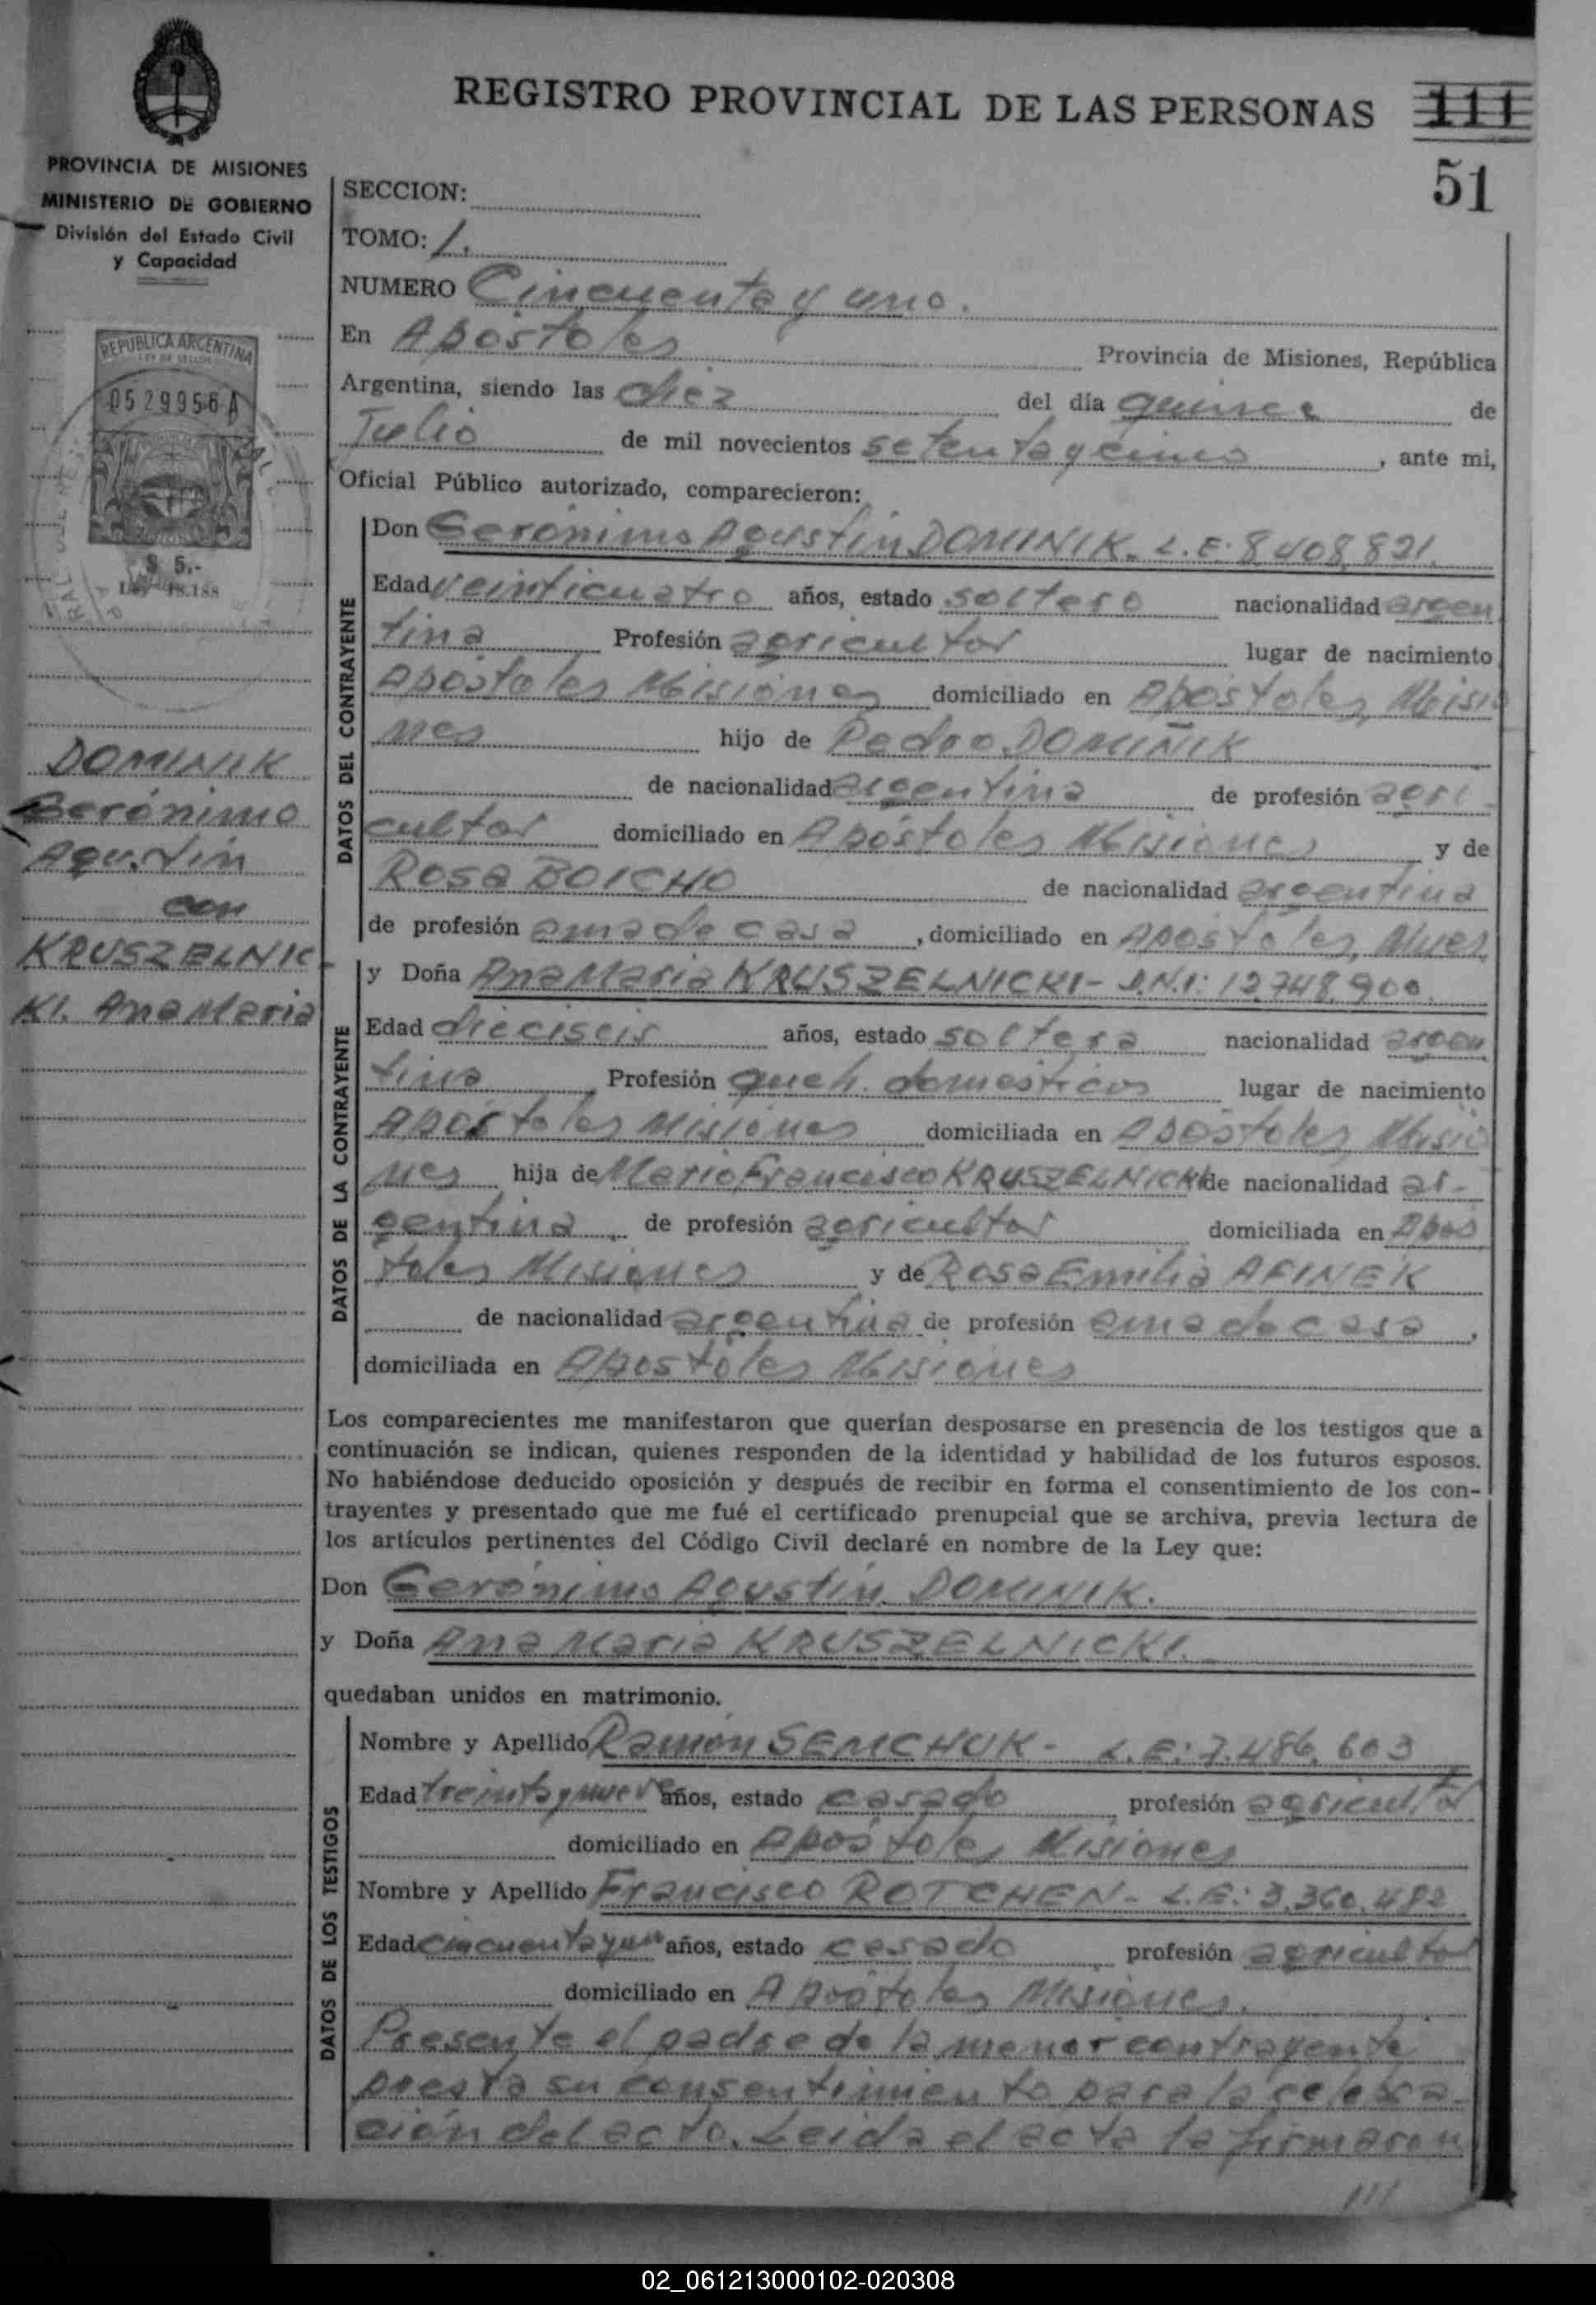 REGISTRO PROVINCIAL DE LAS PERSONAS
111
51
PROVINCIA DE MISIONES
MINISTERIO DE GOBIERNO
División del Estado Civil
y Capacidad
REPUBLICA ARGENTINA
LEY DE SELLOS
0529956 A
$ 5.-
Ley 18.188
DOMINIK
Gerónimo
Agustín
con
KRUSZELNIC
KI. Ana Maria
SECCION:
TOMO: 1.
NUMERO Cincuenta y uno.
En Apóstoles Provincia de Misiones, República
Argentina, siendo las diez del día quince de
Julio de mil novecientos setenta y cinco, ante mi,
Oficial Público autorizado, comparecieron:
DATOS DEL CONTRAYENTE
Don Gerónimo Agustín DOMINIK. L.E: 8.408.821.
Edad veinticuatro años, estado soltero nacionalidad argen
tina Profesión agricultor lugar de nacimiento
Apóstoles Misiones domiciliado en Apóstoles, Misio
nes hijo de Pedro DOMIÑIK
de nacionalidad argentina de profesión agri
cultor domiciliado en Apóstoles Misiones y de
Rosa BOICHO de nacionalidad argentina
de profesión ama de casa, domiciliado en Apóstoles, Mnes.
DATOS DE LA CONTRAYENTE
y Doña Ana Maria KRUSZELNICKI- D.N.I: 12.748.900.
Edad dieciseis años, estado soltera nacionalidad argen
tina Profesión queh. domésticos lugar de nacimiento
Apóstoles Misiones domiciliada en Apóstoles, Misio
nes hija de Mario Francisco KRUSZELNICKI de nacionalidad ar-
gentina de profesión agricultor domiciliada en Após
toles Misiones y de Rosa Emilia AFINEK
de nacionalidad argentina de profesión ama de casa,
domiciliada en Apóstoles Misiones
Los comparecientes me manifestaron que querían desposarse en presencia de los testigos que a
continuación se indican, quienes responden de la identidad y habilidad de los futuros esposos.
No habiéndose deducido oposición y después de recibir en forma el consentimiento de los con-
trayentes y presentado que me fué el certificado prenupcial que se archiva, previa lectura de
los artículos pertinentes del Código Civil declaré en nombre de la Ley que:
Don Gerónimo Agustín DOMINIK.
y Doña Ana Maria KRUSZELNICKI.
quedaban unidos en matrimonio.
DATOS DE LOS TESTIGOS
Nombre y Apellido Ramón SEMCHUK- L.E: 7.486.603
Edad treinta y nueve años, estado casado profesión agricultor
domiciliado en Apóstoles Misiones
Nombre y Apellido Francisco ROTCHEN- L.E: 3.360.482
Edad cincuenta y un años, estado casado profesión agricultor
domiciliado en Apóstoles Misiones.
Presente el padre de la menor contrayente
presta su consentimiento para la celebra-
ción del acto. Leida el acta la firmaron
///
02_061213000102-020308